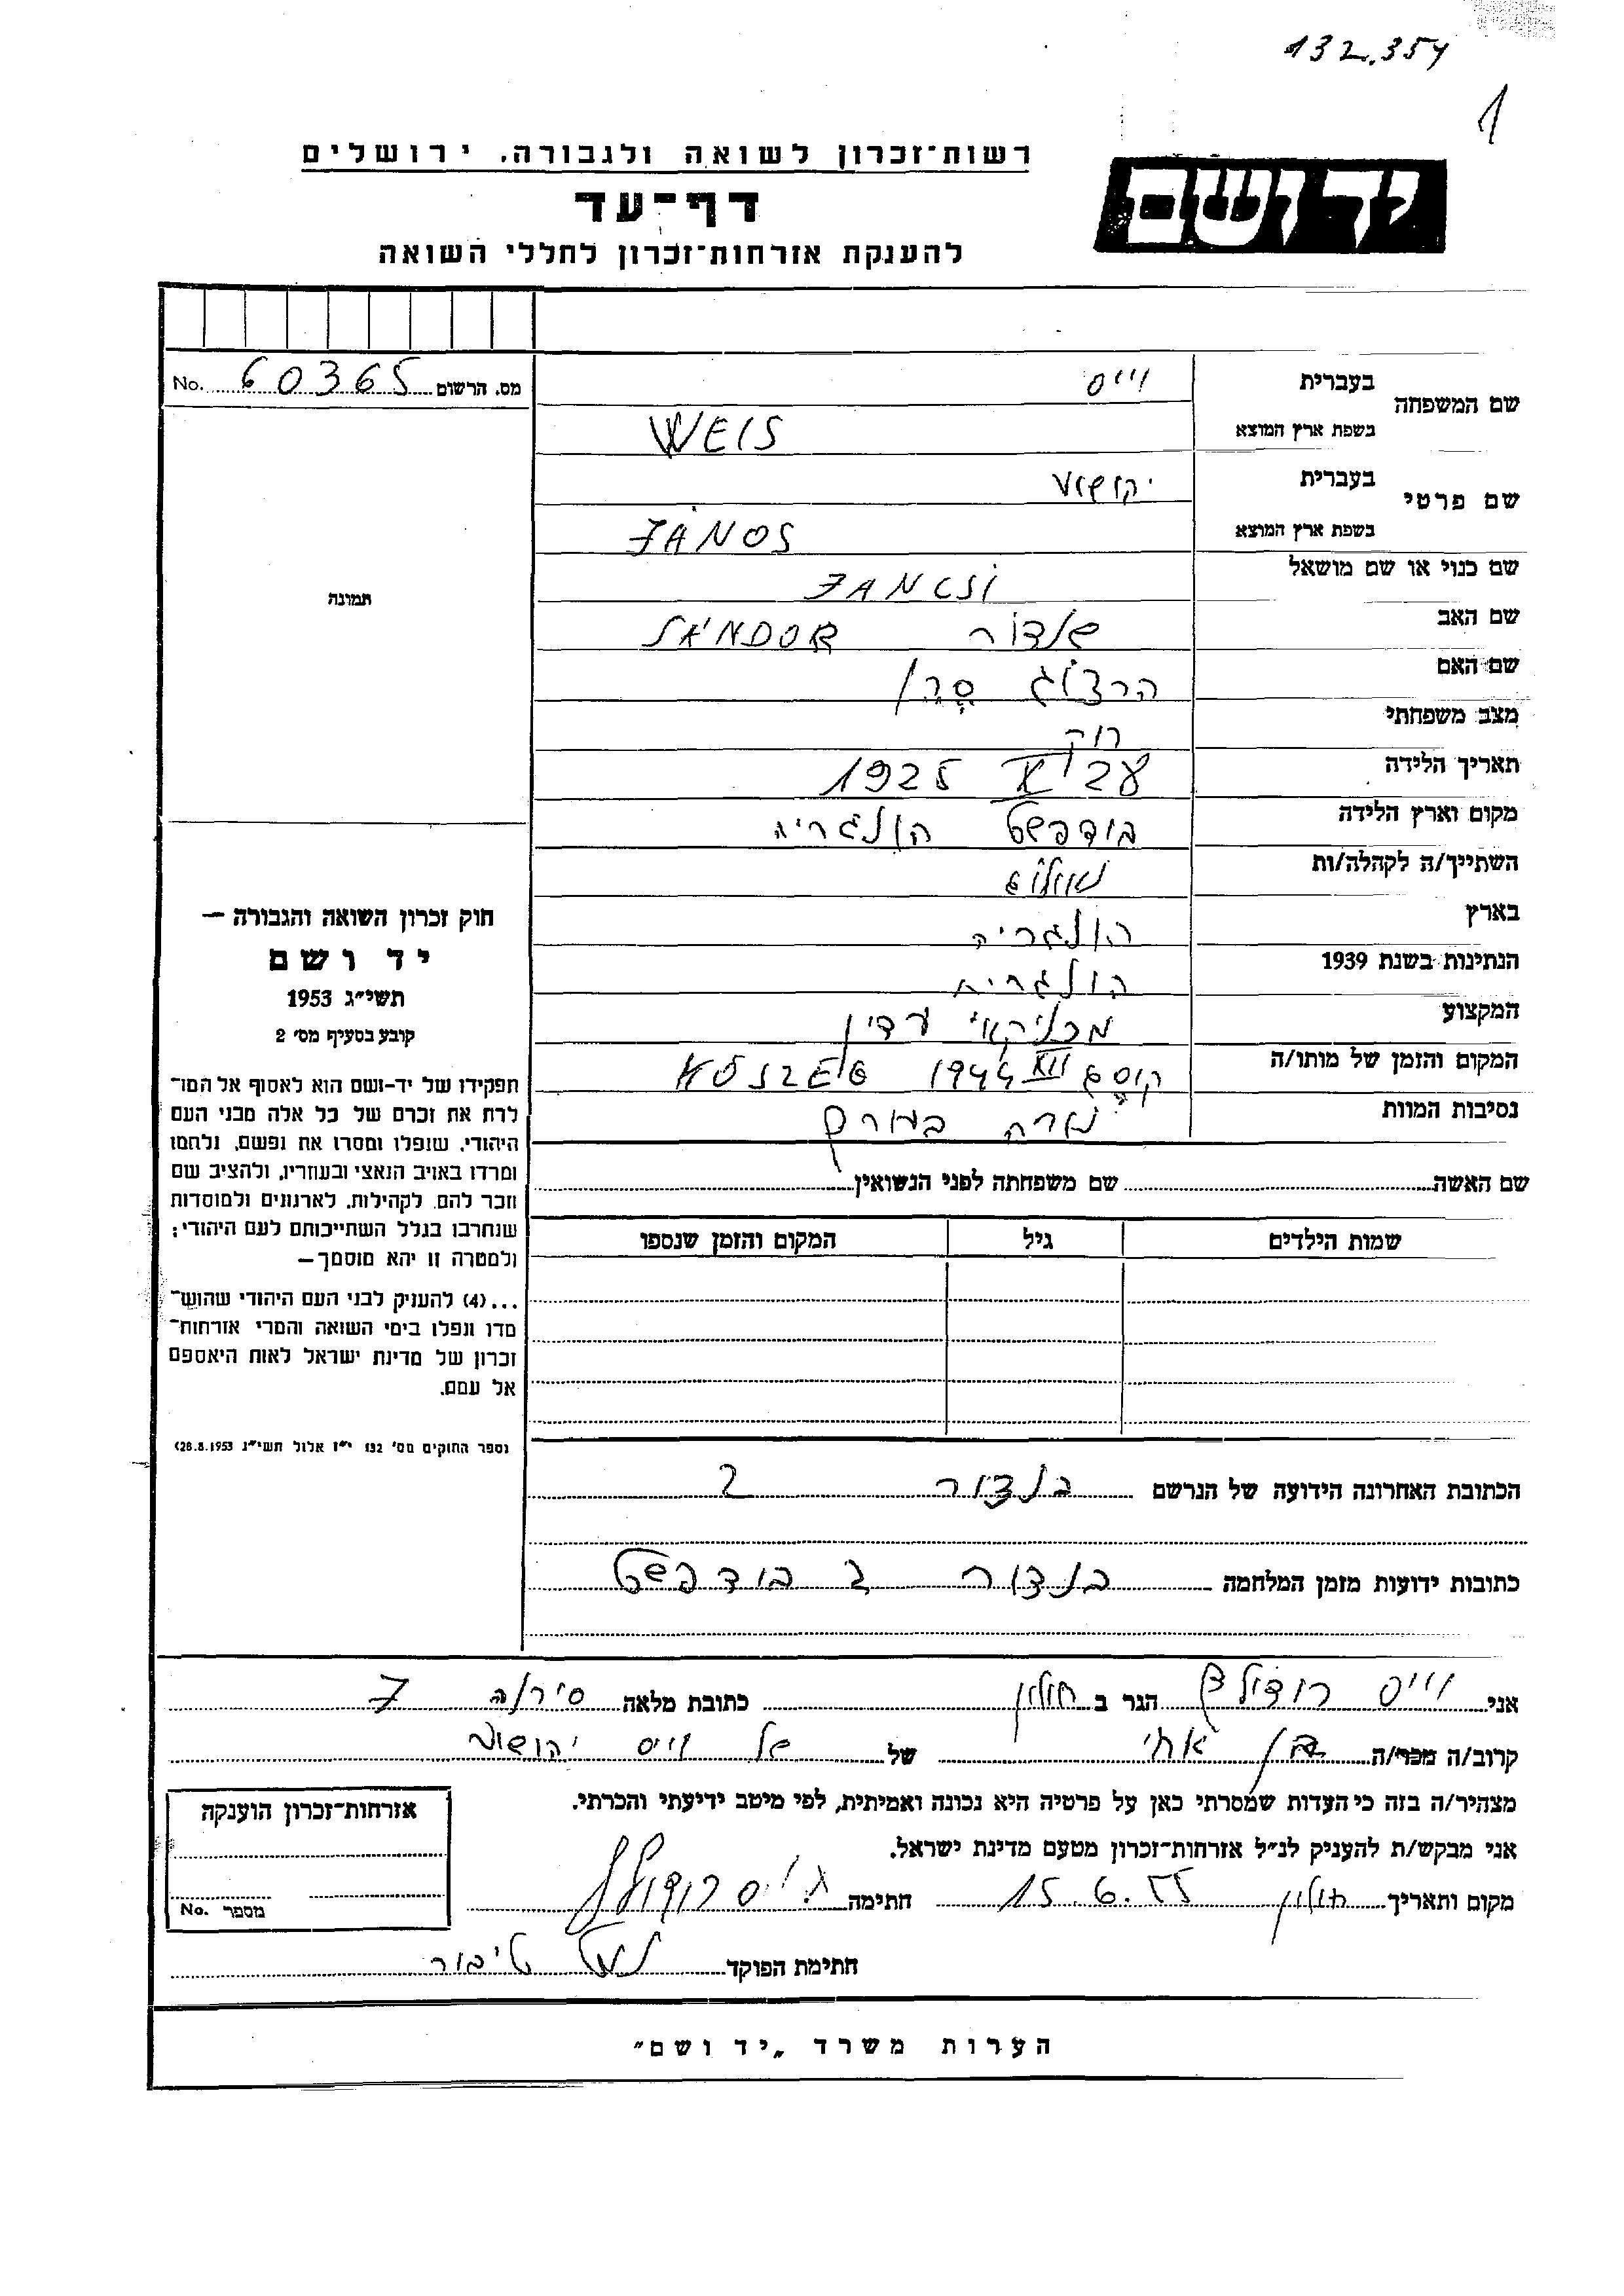 132.354
1
ידושם
רשות־זכרון לשואה ולגבורה, ירושלים
דף־עד
להענקת אזרחות־זכרון לחללי השואה
מס. הרשום 60365 No.
שם המשפחה
בעברית וייס
בשפת ארץ המוצא WEIS
שם פרטי
בעברית יהושוע
בשפת ארץ המוצא JÁNOS
שם כנוי או שם מושאל JANCSI
שם האב שנדור SÁNDOR
שם האם הרצוג
מצב משפחתי רוק
תאריך הלידה 1925
מקום וארץ הלידה בודפשט הונגריה
השתייך/ה לקהלה/ות
בארץ הונגריה
הנתינות בשנת 1939 הונגרית
המקצוע מכניקאי עדין
המקום והזמן של מותו/ה קוסג XII 1944 KŐSZEG
נסיבות המוות נורה בעורף
תמונה
שם האשה שם משפחתה לפני הנשואין
שמות הילדים גיל המקום והזמן שנספו
חוק זכרון השואה והגבורה —
יד ושם
תשי״ג 1953
קובע בסעיף מס׳ 2
תפקידו של יד-ושם הוא לאסוף אל המו־
לדת את זכרם של כל אלה מבני העם
היהודי, שנפלו ומסרו את נפשם, נלחמו
ומרדו באויב הנאצי ובעוזריו, ולהציב שם
וזכר להם, לקהילות, לארגונים ולמוסדות
שנחרבו בגלל השתייכותם לעם היהודי;
ולמטרה זו יהא מוסמך—
...(4) להעניק לבני העם היהודי שהוש־
מדו ונפלו בימי השואה והמרי אזרחות־
זכרון של מדינת ישראל לאות היאספם
אל עמם.
(ספר החוקים מס׳ 132 י״ז אלול תשי״ג 28.8.1953)
הכתובת האחרונה הידועה של הנרשם בנדור 2
כתובות ידועות מזמן המלחמה בנדור 2 בודפשט
אני וייס רודולף הגר ב חולון כתובת מלאה 7
קרוב/ה מכר/ה בן אחי של של וייס יהושוע
מצהיר/ה בזה כי העדות שמסרתי כאן על פרטיה היא נכונה ואמיתית, לפי מיטב ידיעתי והכרתי.
אני מבקש/ת להעניק לנ״ל אזרחות־זכרון מטעם מדינת ישראל.
מקום ותאריך חולון 15.6.55 חתימה וייס רודולף
חתימת הפוקד טיבור
אזרחות־זכרון הוענקה
מספר No.
הערות משרד „יד ושם״